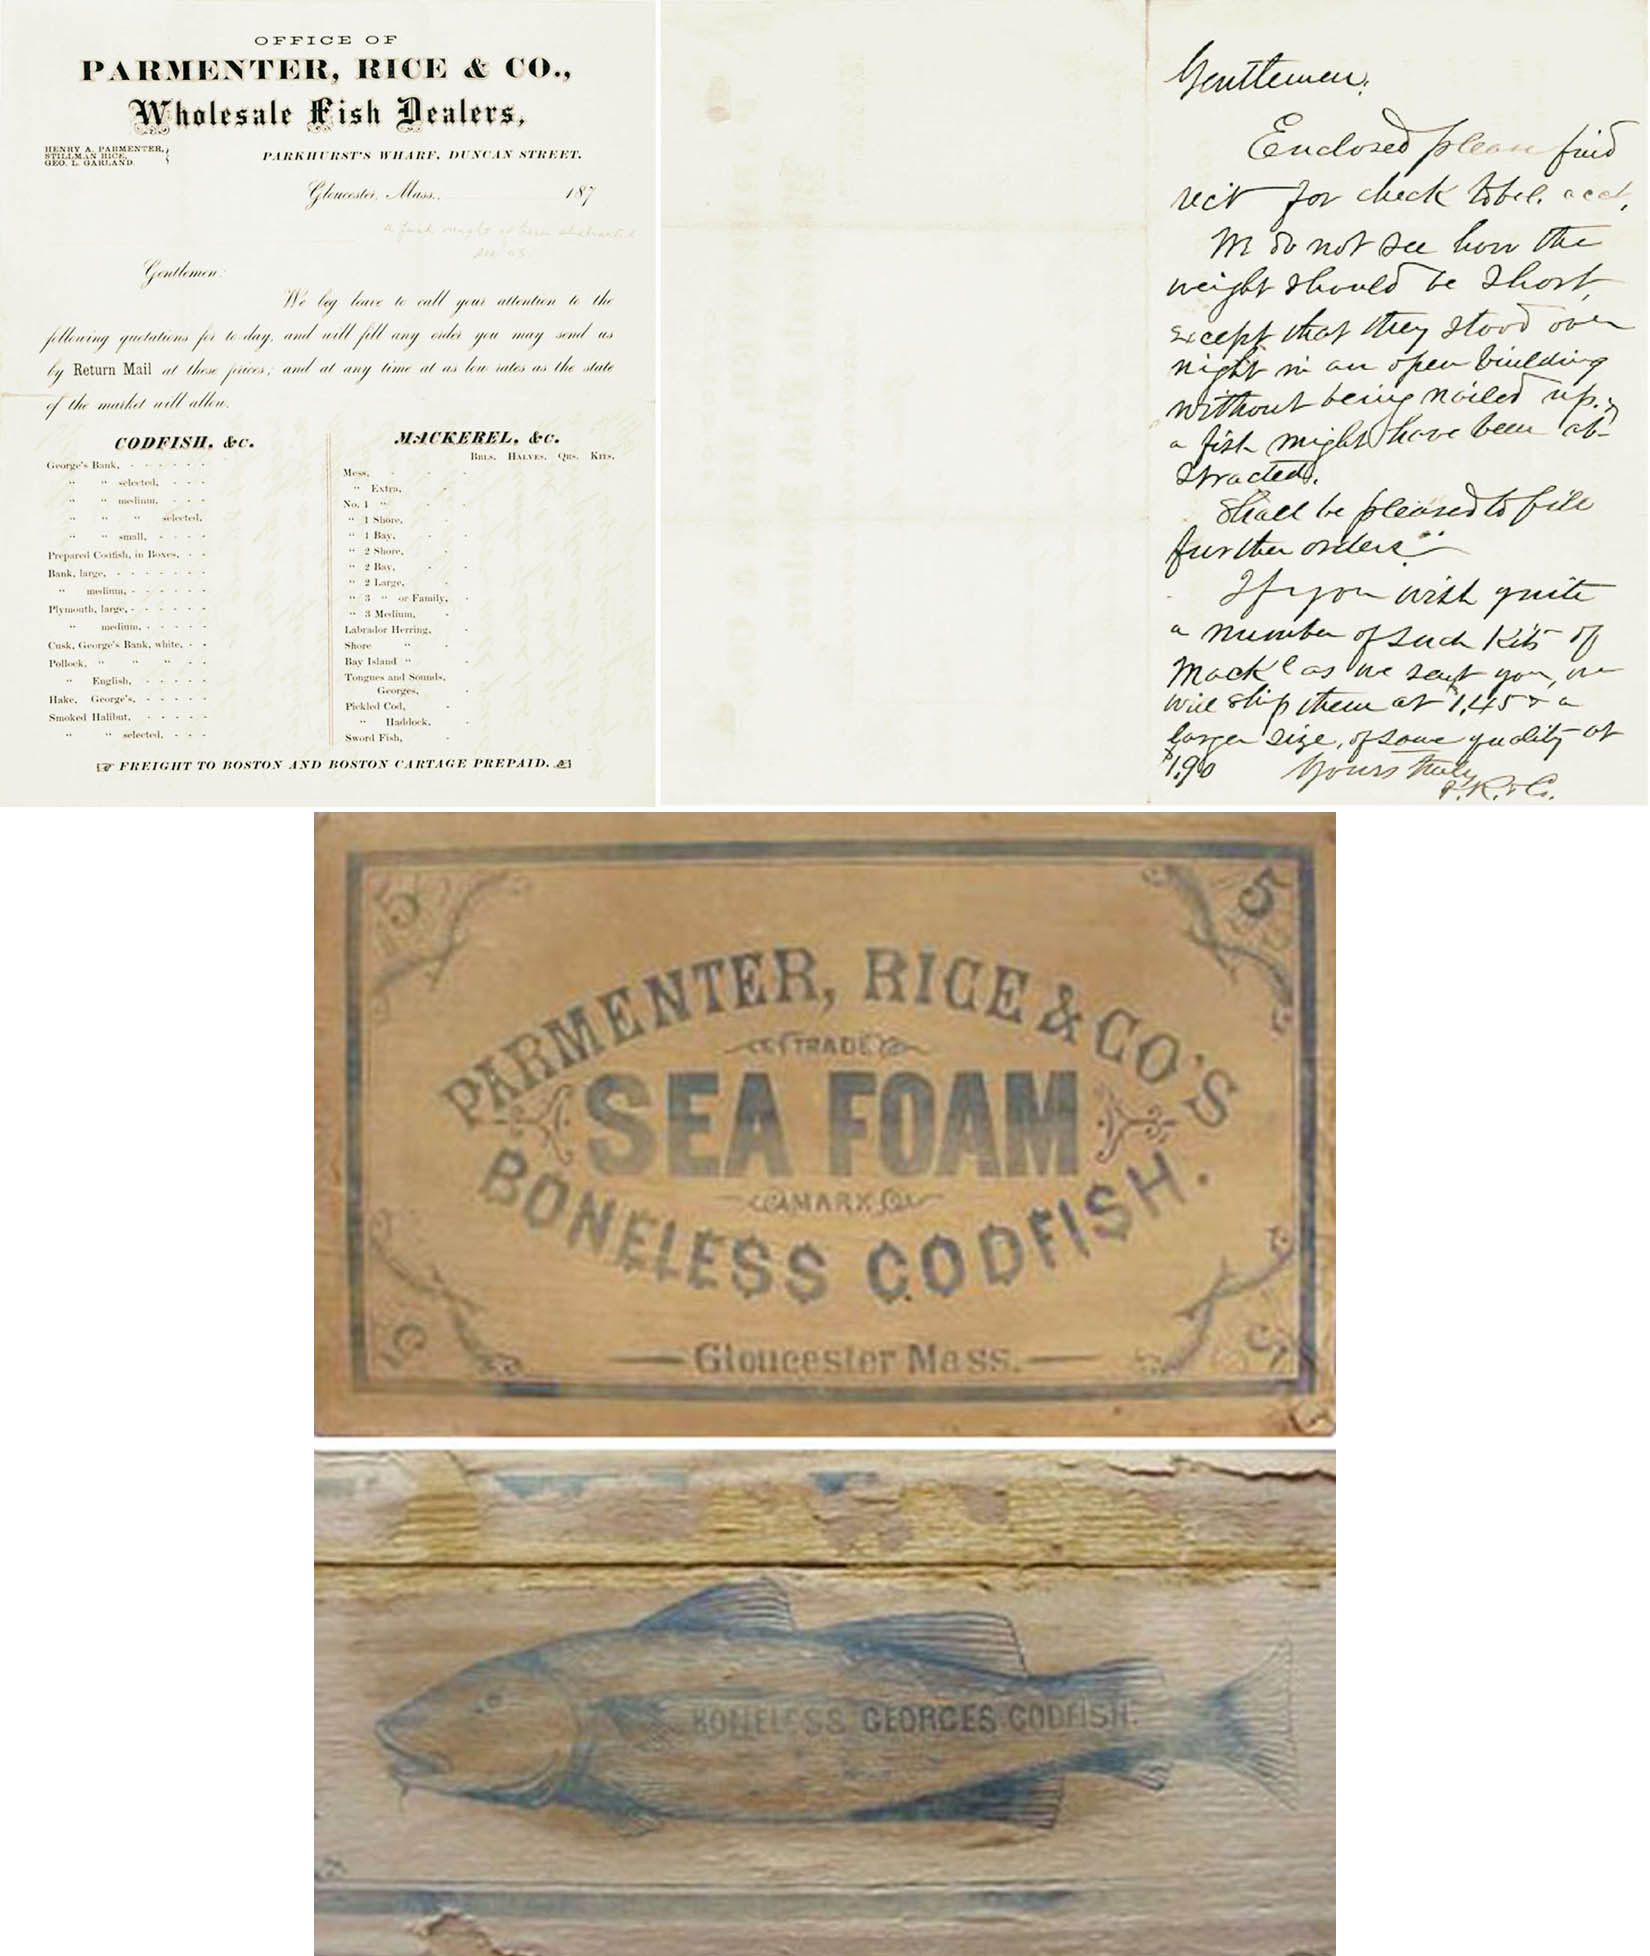 OFFICE OF
PARMENTER, RICE & CO.,
Wholesale Fish Dealers,
HENRY A. PARMENTER,
STILLMAN RICE,
GEO. L. GARLAND.
PARKHURST'S WHARF, DUNCAN STREET.
Gloucester, Mass., 187
a fish might of been abstracted
Gentlemen:
We beg leave to call your attention to the
following quotations for to-day, and will fill any order you may send us
by Return Mail at these prices; and at any time at as low rates as the state
of the market will allow.
CODFISH, &c.
George's Bank, - - - - - -
" " selected, - - -
" " medium, - - -
" " " selected,
" " small, - - - -
Prepared Codfish, in Boxes, - -
Bank, large, - - - - - - -
" medium, - - - - - -
Plymouth, large, - - - - - -
" medium, - - - - -
Cusk, George's Bank, white, - -
Pollock, " " " - -
" English, - - - - -
Hake, George's, - - - - -
Smoked Halibut, - - - - -
" " selected, - - -
MACKEREL, &c.
BBLS. HALVES. QRS. KITS.
Mess, - - -
" Extra, -
No. 1 " - -
" 1 Shore, -
" 1 Bay, - -
" 2 Shore, -
" 2 Bay, - -
" 2 Large, -
" 3 " or Family, -
" 3 Medium, -
Labrador Herring, -
Shore " -
Bay Island " -
Tongues and Sounds,
Georges, -
Pickled Cod, -
" Haddock, -
Sword Fish, -
FREIGHT TO BOSTON AND BOSTON CARTAGE PREPAID.
Gentlemen:
Enclosed please find
rect for check to bal. acct.
We do not see how the
weight should be short,
except that they stood over
night in an open building
without being nailed up. &
a fish might have been ab-
stracted.
Shall be pleased to fill
further orders
If you wish quite
a number of such Kits of
Mackl as we sent you, we
will ship them at 1.45 & a
larger size, of same quality at
$1.90 Yours truly
P. R. & Co.
5 5
PARMENTER, RICE & CO'S
TRADE
SEA FOAM
MARK
BONELESS CODFISH.
Gloucester Mass.
5 5
BONELESS GEORGES CODFISH.